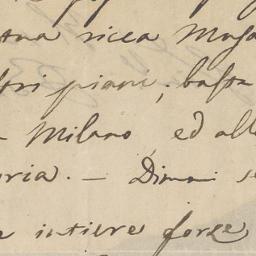 tua ricca Musa
tri piani; basta
Milano, ed all
oria. — Dimmi se
e intiere forze